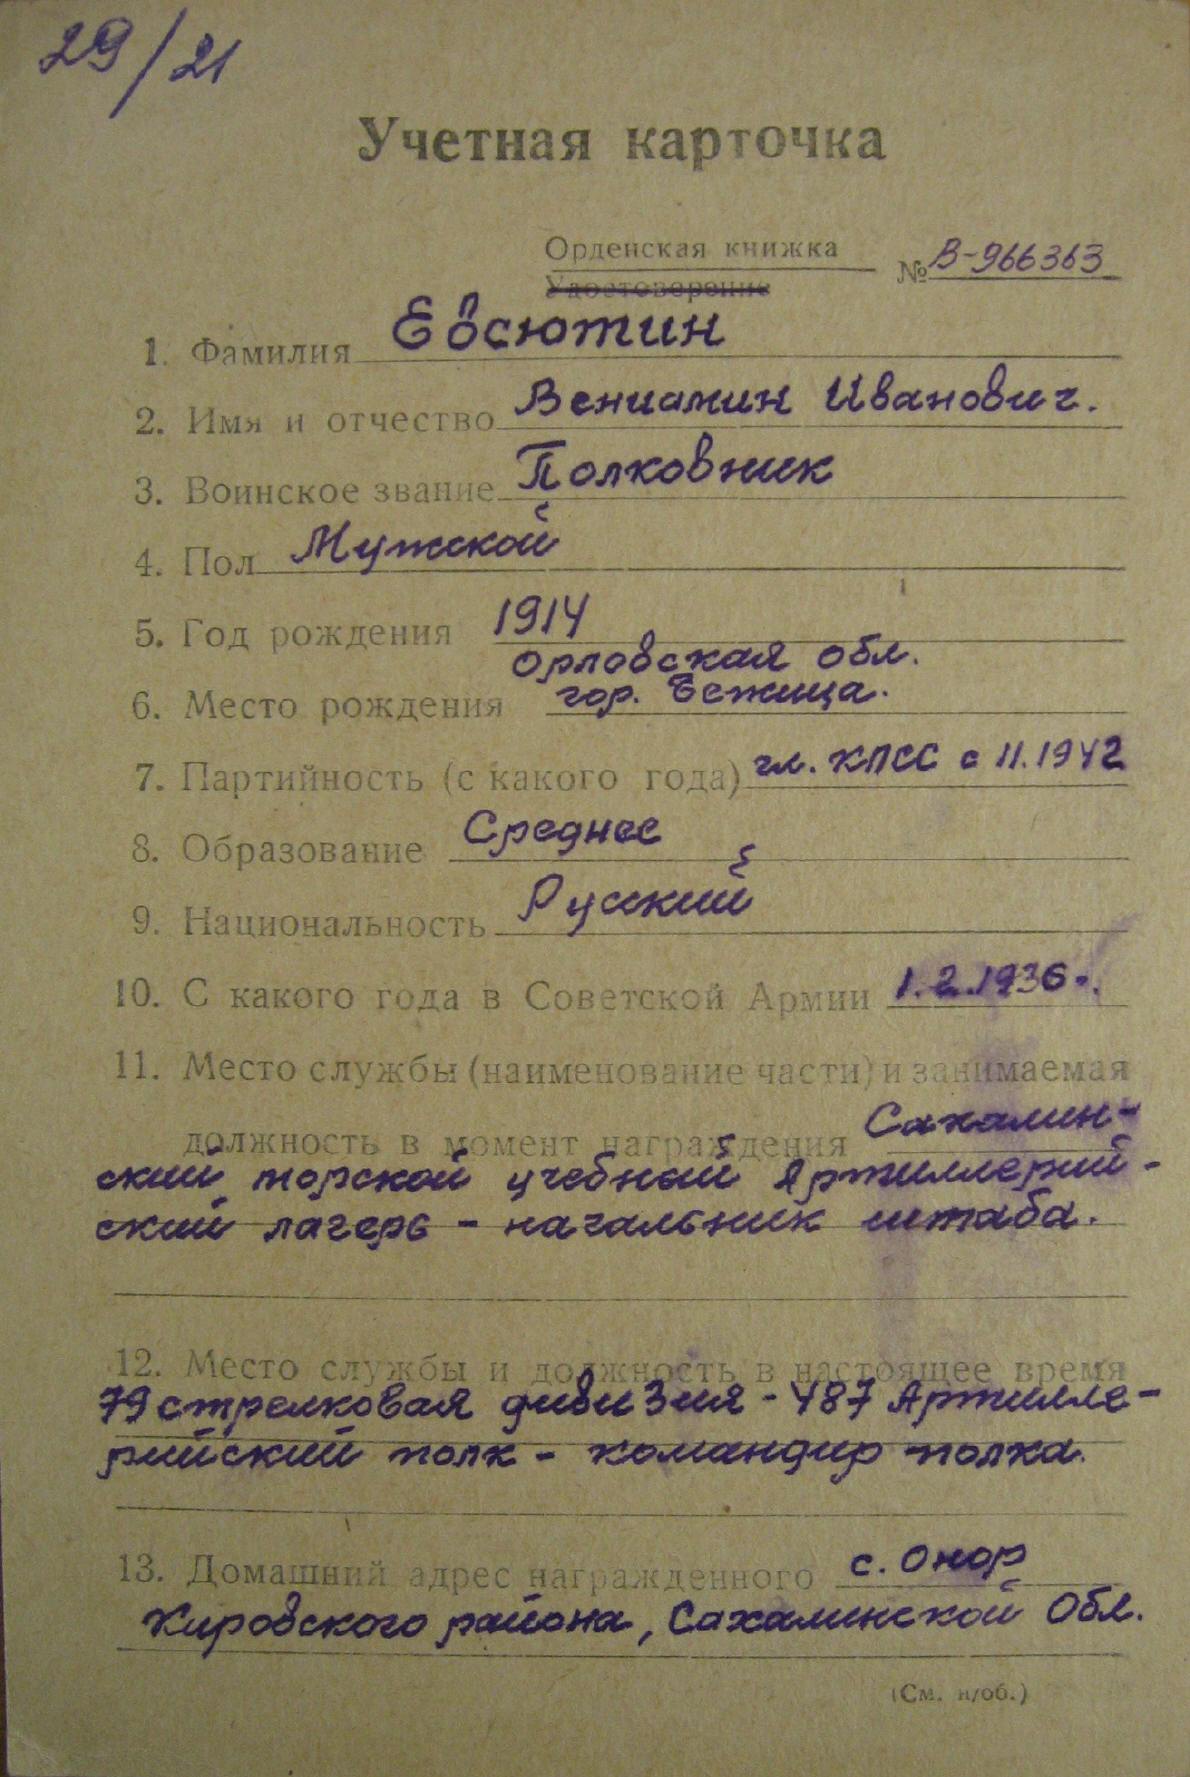 29/21
Учетная карточка
Орденская книжка
Удостоверение
№ В-966363
1. Фамилия Евсютин
2. Имя и отчество Вениамин Иванович.
3. Воинское звание Полковник
4. Пол Мужской
5. Год рождения 1914
Орловская обл.
6. Место рождения гор. Бежица.
7. Партийность (с какого года) чл. КПСС с 11.1942
8. Образование Среднее
9. Национальность Русский
10. С какого года в Советской Армии 1.2.1936.
11. Место службы (наименование части) и занимаемая
должность в момент награждения Сахалин-
ский морской учебный Артиллерий-
ский лагерь - начальник штаба.
12. Место службы и должность в настоящее время
79 стрелковая дивизия - 487 Артилле-
рийский полк - командир полка.
13. Домашний адрес награжденного с. Онор
Кировского района, Сахалинской Обл.
(См. н/об.)